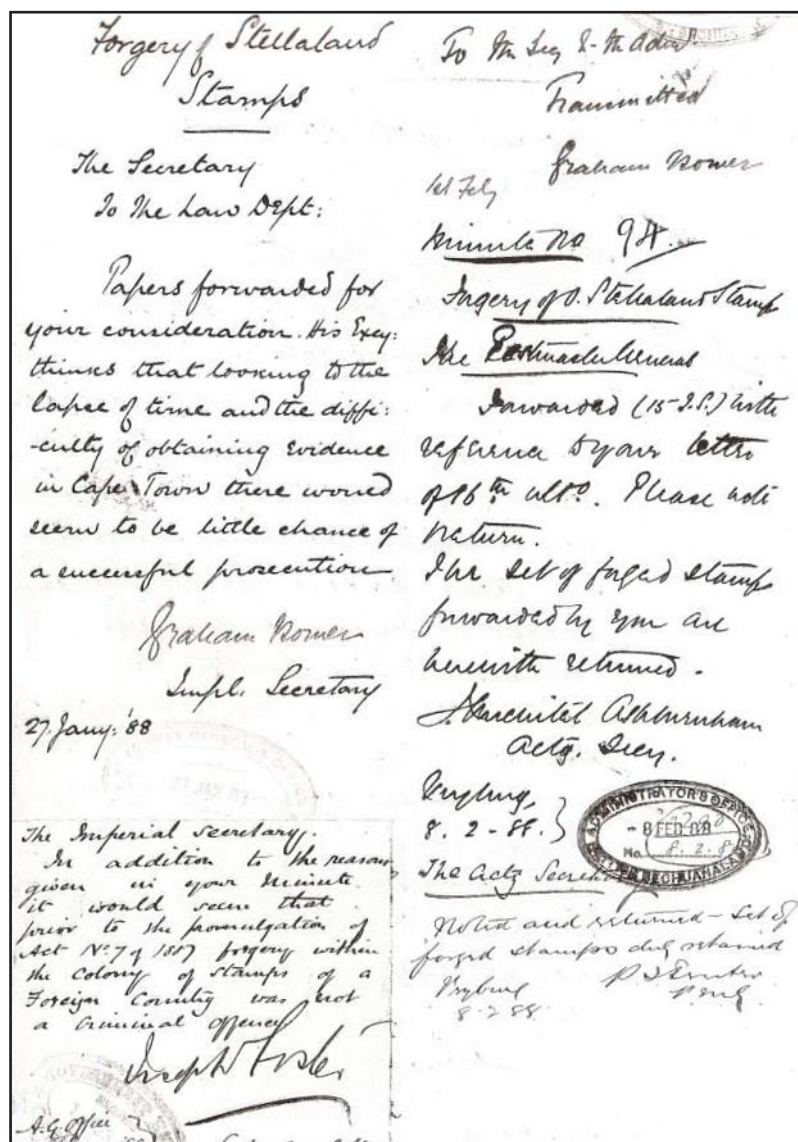 Forgery of Stellaland
Stamps
The Secretary
To The Law Dept:
Papers forwarded for
your consideration. His Excy:
thinks that looking to the
lapse of time and the diffi:
-culty of obtaining evidence
in Cape Town there would
seem to be little chance of
a successful prosecution
Graham Bower
Impl. Secretary
27. Jany: '88
The Imperial Secretary.
In addition to the reasons
given in your Minute
it would seem that
prior to the promulgation of
Act No. 7 of 1887 forgery within
the Colony of Stamps of a
Foreign Country was not
a Criminal offence
A.G. Office
To the Secy to the Admr
Transmitted
Graham Bower
1st Feby
Minute No 94.
Forgery of O. Stellaland Stamps
The Postmaster General
Forwarded (15 I.P.) with
reference to your letter
of 16th ulto. Please note
return.
The set of forged stamps
forwarded by you are
herewith returned.
Ashburnham
Actg. Secy.
Vryburg,
8. 2 - 88.
ADMINISTRATOR'S OFFICE
- 8 FEB 88
No 8.2.8
BECHUANALAND
The Actg Secretary
Noted and returned - Set of
forged stamps duly retained
Vryburg
8-2-88